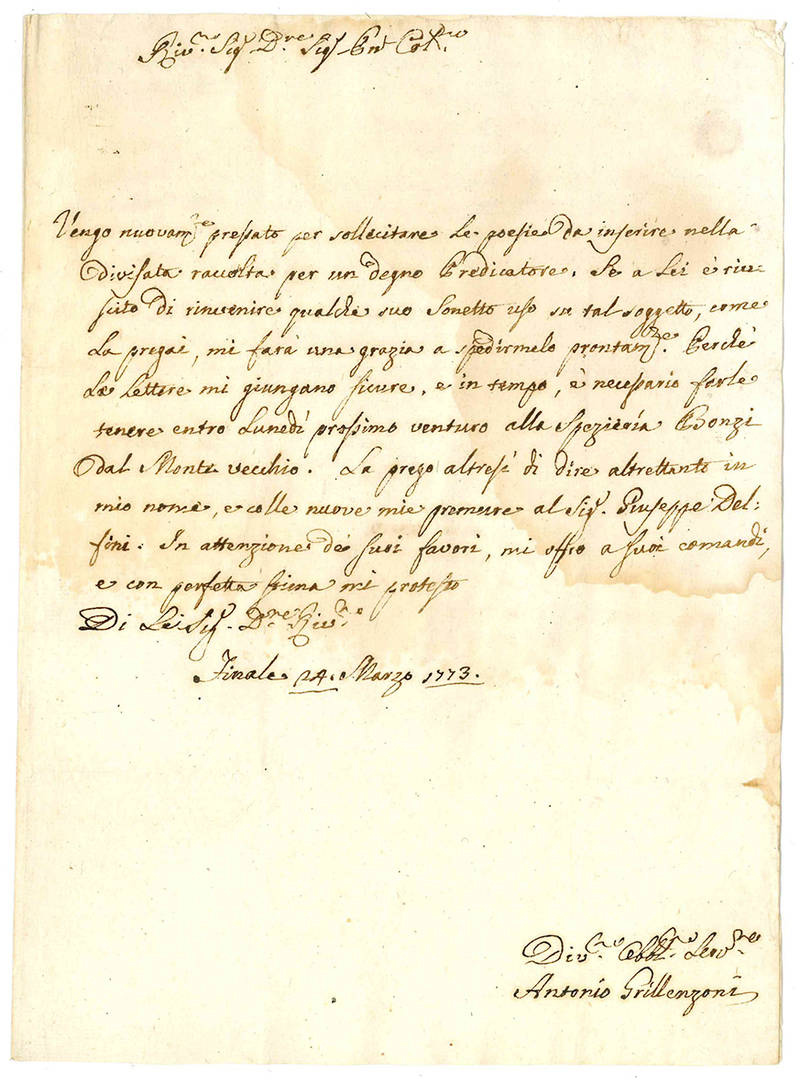 Riv.mo Sig.r D.re Sig.r
Vengo nuovam.te pressato per sollecitare le poesie da inserire nella
divisata raccolta per un degno Predicatore. Se a Lei è riu-
scito di rinvenire qualche suo Sonetto uso su tal soggetto, come
La pregai, mi farà una grazia a spedirmelo prontam.te. Perchè
Le Lettere mi giungano sicure, e in tempo, è necessario farle
tenere entro Lunedì prossimo venturo alla Spezieria Bonzi
dal Monte vecchio. La prego altresì di dire altrettanto in
mio nome, e colle nuove mie premure al Sig.r Giuseppe Del-
fini. In attenzione de' suoi favori, mi offro a suoi comandi,
e con perfetta stima mi protesto
Di Lei Sig.r D.re Riv.mo
Finale 24. Marzo 1773.
Div.mo Obbl.mo Serv.re
Antonio Grillenzoni